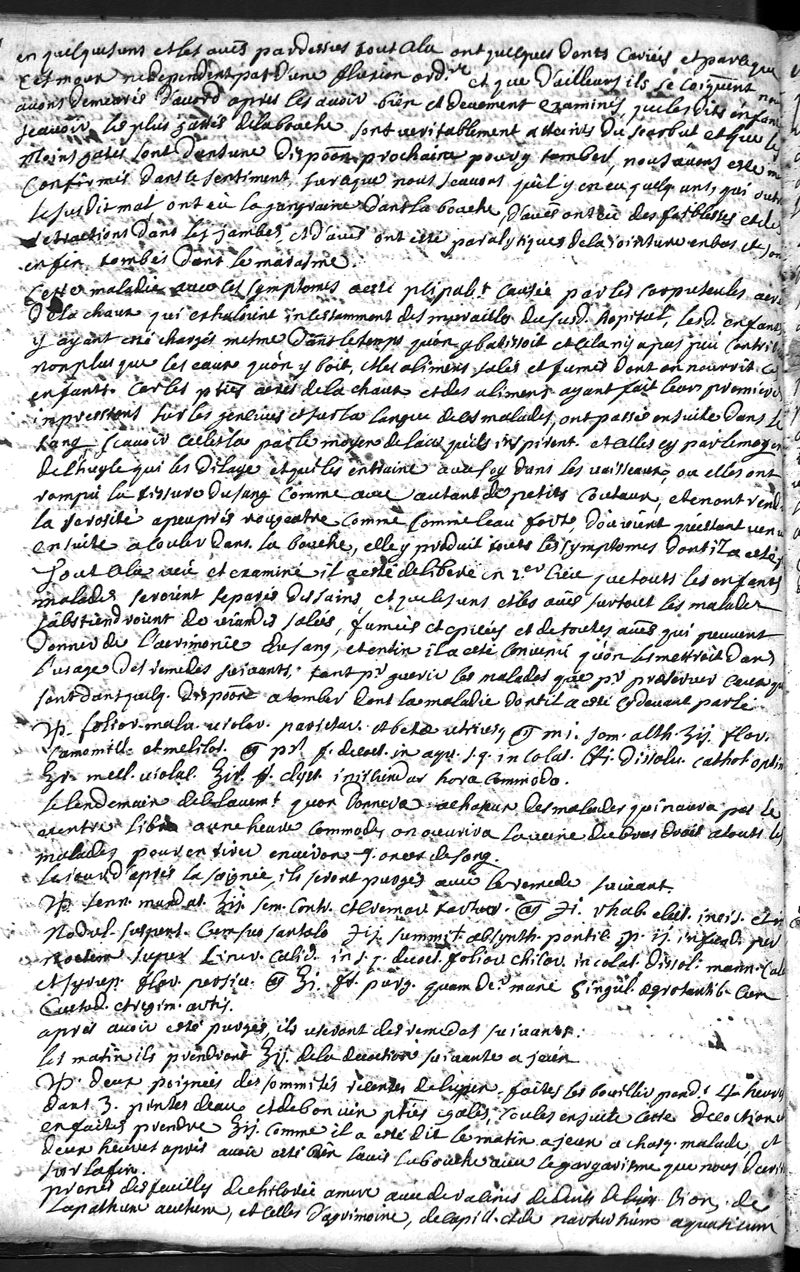 en quelques uns et les aûes par dessus tout cela ont quelques dents cariées et parceque
cest moux ne dependent pas d'une fluxion ord.re et que d'ailleurs ils se coignent nous
avons demeurés d'acord apres les avoir bien et deuement examinés, que les dits enfans
scavoir les plus gattés de la bouche sont veritablement atteints du scorbut et que les
moins gates sont dans une dispõon prochaine pour y tomber, nous avons esté
confirmés dans le sentiment, sur ce que nous scavons quil y en eu quelq uns, qui outre
le susdit mal ont eu la gangraine dans la bouche, d'aûes ont eu des faiblesses et de
retractions dans les jambes, et d'aûes ont esté paralytiques de la jointure en bas et sont
enfin tombés dans le marasme.
Cette maladie avec ces symptomes a esté causée par les corpuscules acres
de la chaux qui exhaloint incessamment des murailles du susd. hopital, les d. enfans
y ayant esté chargés metme dans le temps quon y batissoit et cela n'y a pas peu contribué
non plus que les eaux quon y boit, et les alimens salés et fumés dont on nourrit ces
enfants. Car les pties acres de la chaux et des alimens ayant fait leur premiere
impression sur les gencives et sur la langue de ces malades, ont passé ensuite dans le
sang, scavoir celles la par le moyen de l'air quils inspirent et celles cy par le moyen
de l'hugle qui les dilaye et qui les entraine avec soy dans les vaisseaux, ou elles ont
rompu la tissure du sang comme avec autant de petits couteaux, et en ont rendu
la serosité a peu prés rougeatre comme l'eau forte, d'ou vient qu'estant venu
ensuite a couler dans la bouche, elle y produit touts les symptomes dont il a esté
Tout cela veu et examiné il a esté deliberé in 2.er lieu que touts les enfants
malades seroint separés des sains, et quelques uns et les aûes surtout les malades
s'abstiendroient de viandes salées, fumées et epicées et de toutes aûes qui peuvent
donner de l'acrimonie au sang, et enfin il a esté convenu quon les mettroit dans
l'usage des remedes suivants, tant pr guerir les malades que pr preserver ceux qui
sont dans quelq. dispõon a tomber dans la maladie dont il a esté cy devant parlé.
♃. folior. malv. violar. parietar. et betæ utriusq ana m i. sem. alth. ʒij. flor.
camomill. et melilot. ana p i. f. decoct. in aqu. s.q. in colat. dissolv. cathol. optim
mell. violat. f. clyst. iniiciendus hora commoda.
Le lendemain de le lavemt quon donnera a chacun des malades qui n'aura pas le
ventre libre a une heure commode, on ouvrira la veine du bras droit a touts les
malades pour en tirer environ onces de sang.
Le jour d'aprés la saignée, ils seront purgés avec le remede suivant.
♃. senn. mundat. ʒij. sem. contr. et cremor. tartar. ana ʒi. rhab. elect. incis. et in
nodul. suspens. cum suo santalo ʒij. summit. absynth. pontic. p. ij. infund. per
noctem super ciner. calid. in s.q. decoct. folior. chicor. in colat. dissol. mann. cal
et syrup. flor. persic. ana ʒi. ft. purg. quam det mane singul. ægrotantib. cum
custod. et regim. artis.
aprés avoir esté purgés, ils useront des remedes suivants:
Les matin ils prendront ʒij. de la decoction suivante a jeun
♃. deux poignées des sommités recentes de sapin, faites les bouillir pend.t 4 heures
dans 3. pintes d'eau et de bon vin pties egales, coulés ensuite cette decoction et
en faites prendre ʒij. comme il a esté dit le matin a jeun a chasq. malade, et
deux heures aprés avoir esté bien lavés la bouche avec le gargarisme que nous decriv
sur la fin.
prenés des feuilles de chicorée amere avec des racines de dents de lion, de
Lapathum acutum, et celles d'agrimoine, de capill. et de nasturtium aquaticum